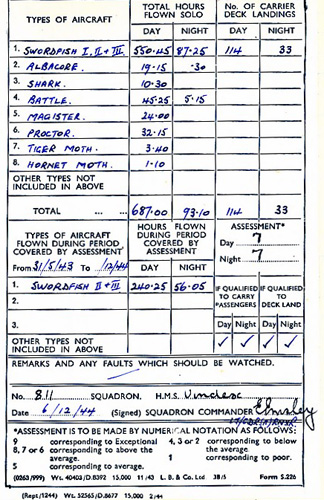 TYPES OF AIRCRAFT
TOTAL HOURS FLOWN SOLO
No. OF CARRIER DECK LANDINGS
DAY NIGHT DAY NIGHT
1. SWORDFISH I, II + III 550.45 87.25 114 33
2. ALBACORE 19.15 .30
3. SHARK. 10.30
4. BATTLE. 45.25 5.15
5. MAGISTER. 24.00
6. PROCTOR. 32.15
7. TIGER MOTH. 3.40
8. HORNET MOTH. 1.10
OTHER TYPES NOT INCLUDED IN ABOVE
TOTAL ... ... 687.00 93.10 114 33
TYPES OF AIRCRAFT FLOWN DURING PERIOD COVERED BY ASSESSMENT
HOURS FLOWN DURING PERIOD COVERED BY ASSESSMENT
ASSESSMENT*
Day 7
Night 7
From 31/5/43 To /12/44 DAY NIGHT
1. SWORDFISH II + III 240.25 56.05
IF QUALIFIED TO CARRY PASSENGERS
IF QUALIFIED TO DECK LAND
2.
3.
Day Night Day Night
OTHER TYPES NOT INCLUDED IN ABOVE ✓ ✓ ✓ ✓
REMARKS AND ANY FAULTS WHICH SHOULD BE WATCHED.
No. 811 SQUADRON. H.M.S. Vindex
Date 6/12/44 (Signed) SQUADRON COMMANDER
*ASSESSMENT IS TO BE MADE BY NUMERICAL NOTATION AS FOLLOWS:
9 corresponding to Exceptional
8, 7 or 6 corresponding to above average.
5 corresponding to average.
4, 3 or 2 corresponding to below the average.
1 corresponding to poor.
(0263/999) Wt. 40403/D.8392 15.000 11/43 L. B. & Co. Ltd 38/5 Form S.226
(Rept/1244) Wt. 52565/D.8677 15,000 2/44